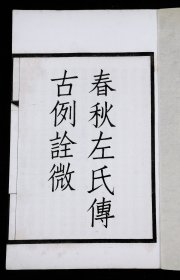 春秋左氏傳
古例詮微